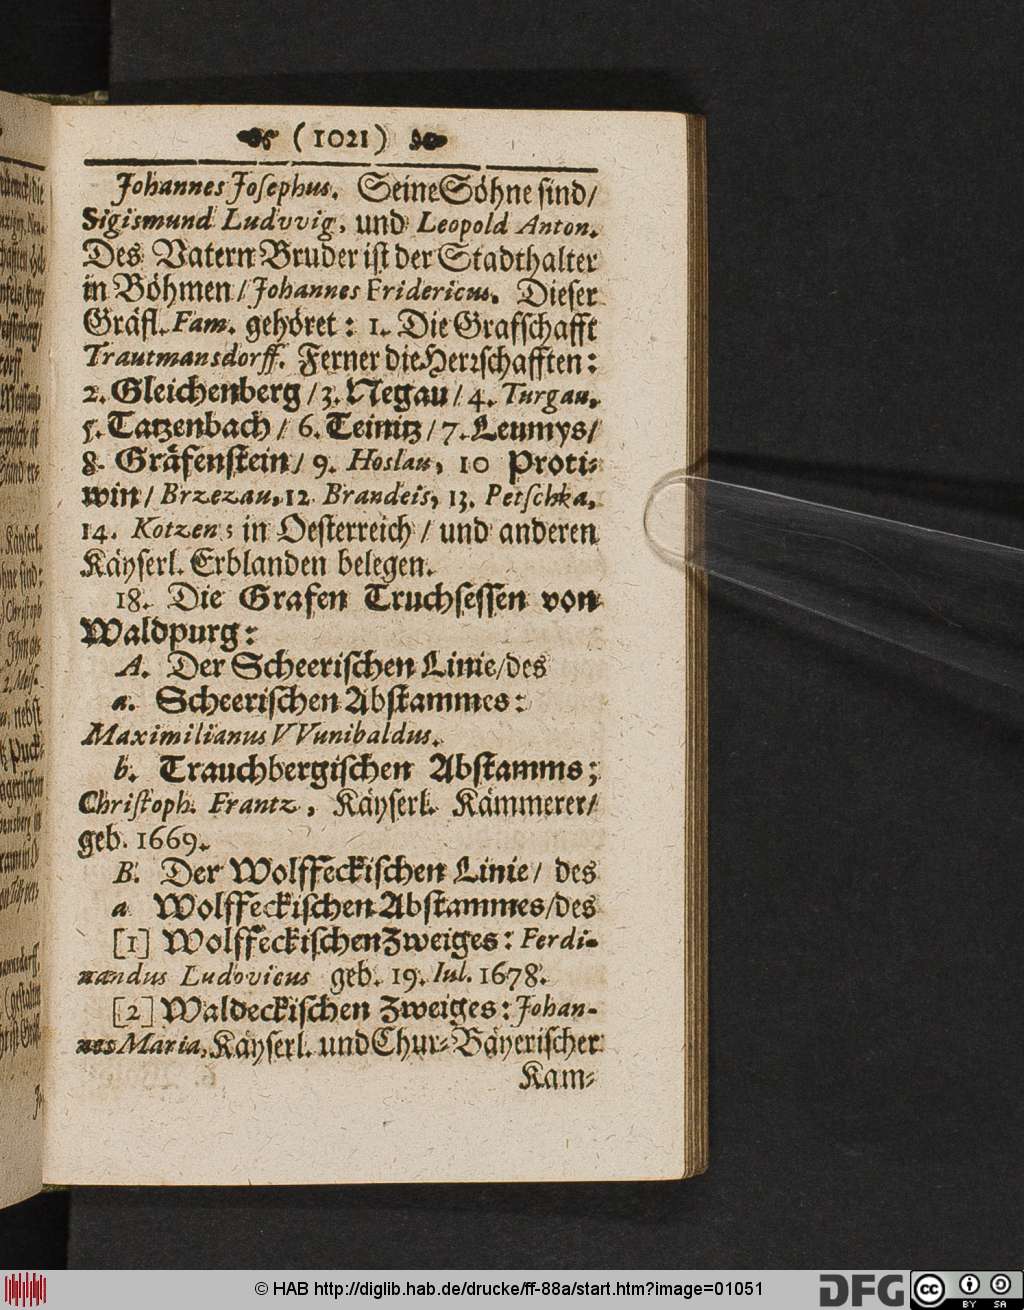 (1021)
Johannes Josephus. Seine Söhne sind/
Sigismund Ludvvig, und Leopold Anton.
Des Vatern Bruder ist der Stadthalter
in Böhmen/ Johannes Fridericus. Dieser
Gräfl. Fam. gehöret: 1. Die Graffschafft
Trautmansdorff. Ferner die Herrschafften:
2. Gleichenberg/ 3. Negau/ 4. Turgau,
5. Tatzenbach/ 6. Teinitz/ 7. Leumys/
8. Gräfenstein/ 9. Hoslau, 10 Proti-
win/ Brzezau, 12 Brandeis, 13. Petschka,
14. Kotzen; in Oesterreich/ und anderen
Käyserl. Erblanden belegen.
18. Die Grafen Truchsessen von
Waldpurg:
A. Der Scheerischen Linie/des
a. Scheerischen Abstammes:
Maximilianus VVunibaldus.
b. Trauchbergischen Abstamms;
Christoph. Frantz, Käyserl. Kämmerer/
geb. 1669.
B. Der Wolffeckischen Linie/ des
a Wolffeckischen Abstammes/des
[1] Wolffeckischen Zweiges: Ferdi-
nandus Ludovicus geb. 19. Iul. 1678.
[2] Waldeckischen Zweiges: Johan-
nes Maria, Käyserl. und Chur-Bäyerischer
Kam-
© HAB http://diglib.hab.de/drucke/ff-88a/start.htm?image=01051
DFG
cc BY SA